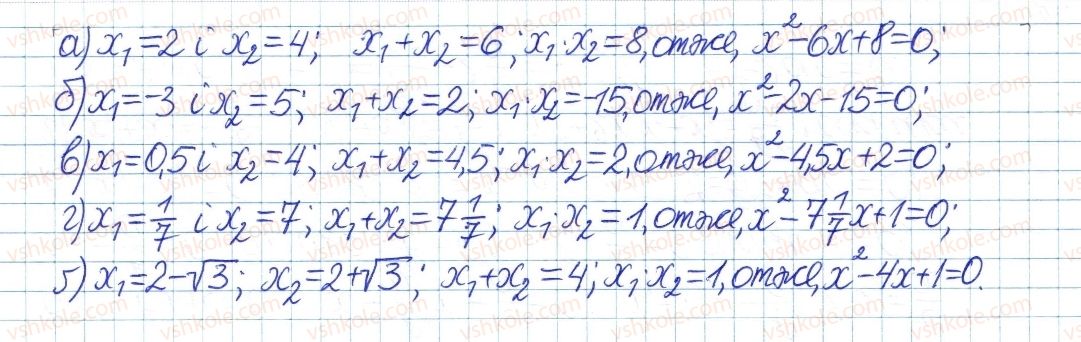 а) x₁=2 і x₂=4; x₁+x₂=6; x₁·x₂=8, отже, x²-6x+8=0;
б) x₁=-3 і x₂=5; x₁+x₂=2; x₁·x₂=-15, отже, x²-2x-15=0;
в) x₁=0,5 і x₂=4; x₁+x₂=4,5; x₁·x₂=2, отже, x²-4,5x+2=0;
г) x₁=1/7 і x₂=7; x₁+x₂=7 1/7; x₁·x₂=1, отже, x²-7 1/7x+1=0;
ґ) x₁=2-√3; x₂=2+√3; x₁+x₂=4; x₁·x₂=1, отже, x²-4x+1=0.